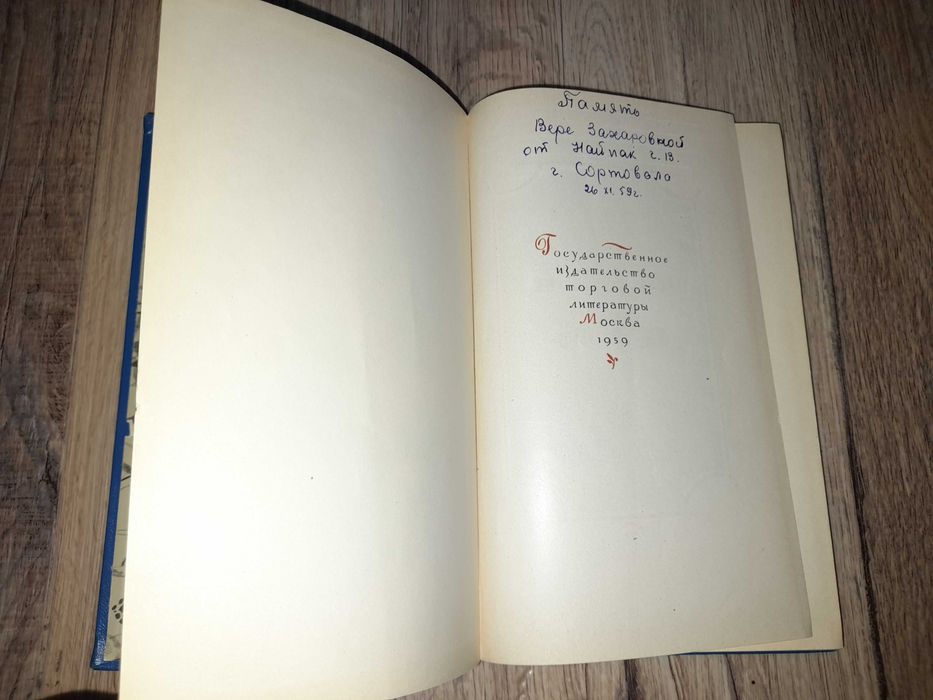 Память
Вере Захаровной
от Найпак г. в.
г. Сортовала
26 XI. 59г.
Государственное
издательство
торговой
литературы
Москва
1959